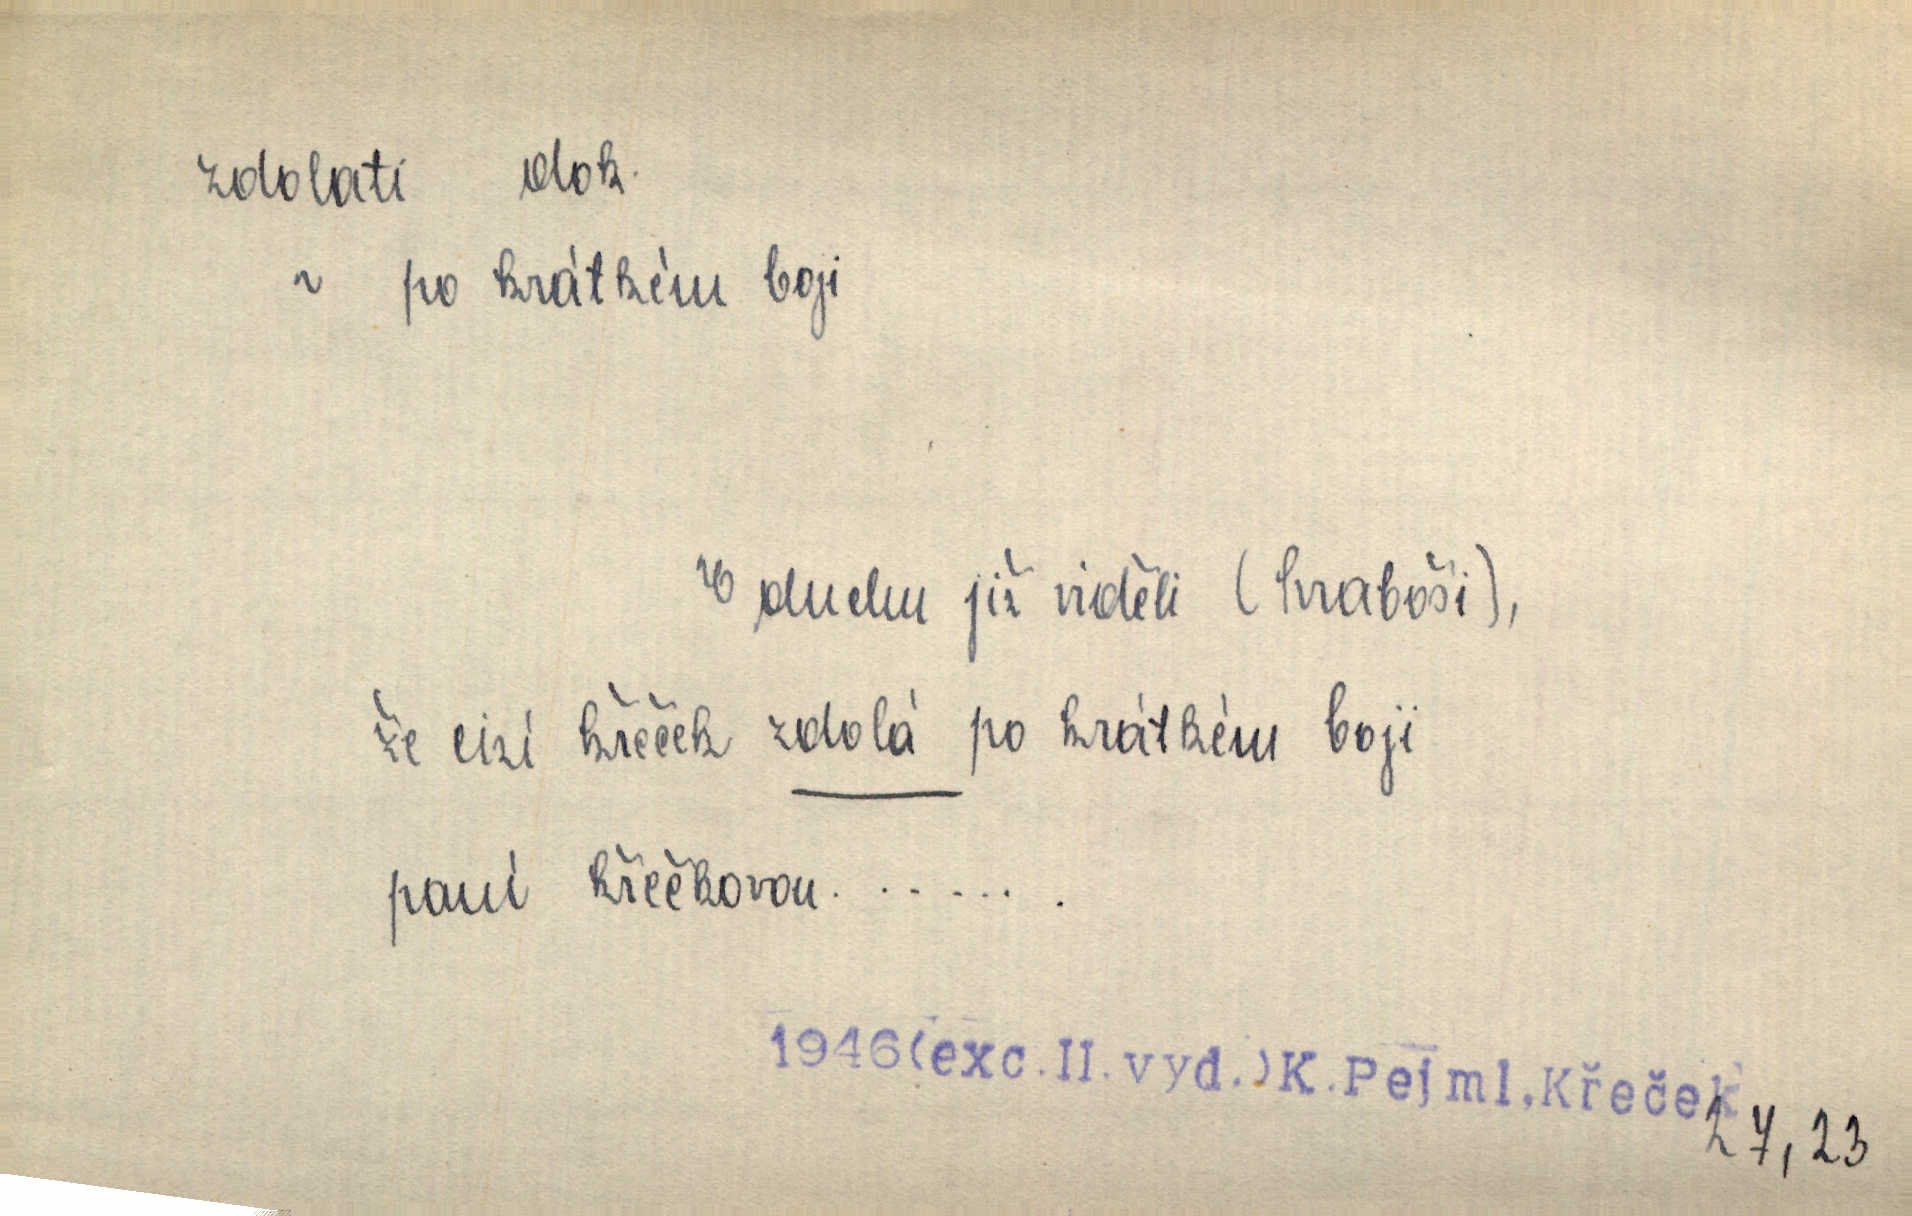 zdolati dok.
~ po krátkém boji
V duchu již viděli (hraboši),
že cizí křeček zdolá po krátkém boji
paní křečkovou. . . . . . . .
1946(exc.II.vyd.)K.Pejml,Křeček
27,23